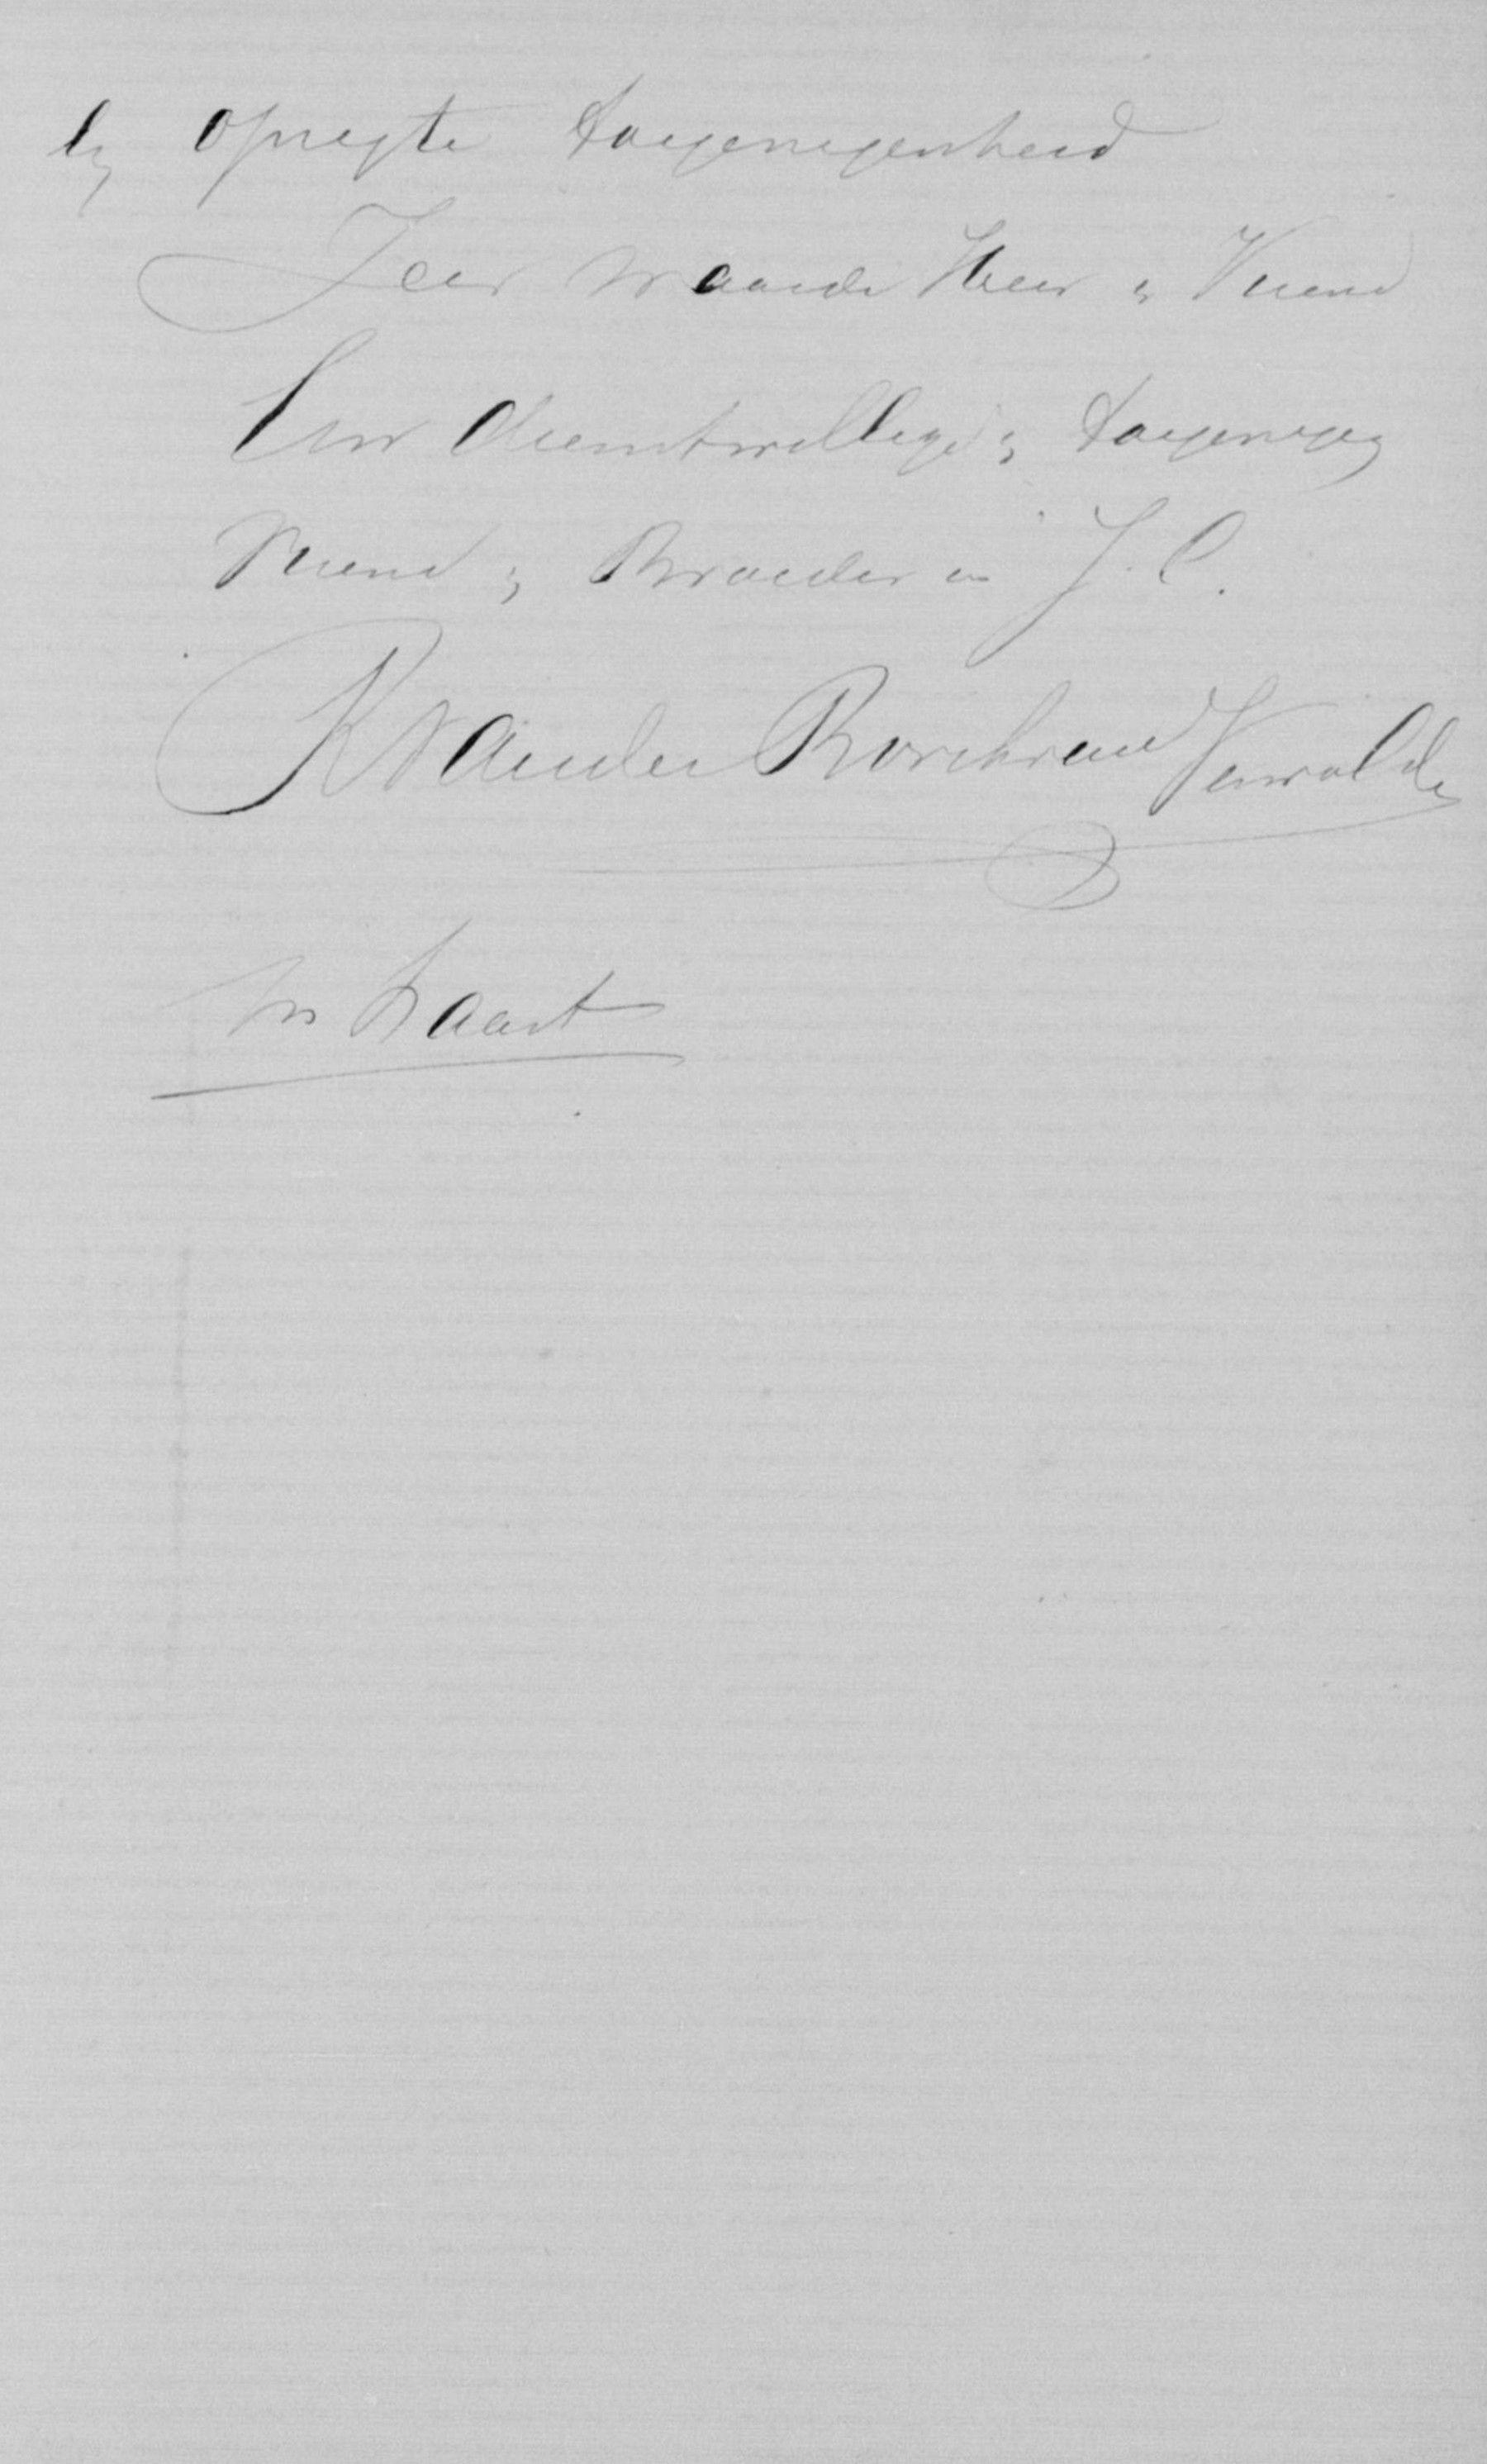 by opregte toegenegenheid
Zeer waarde Heer en Vriend
Uw dienstwillige en toegenegen
Vriend en Broeder in J. C.
van der Borch van Verwolde
In haast